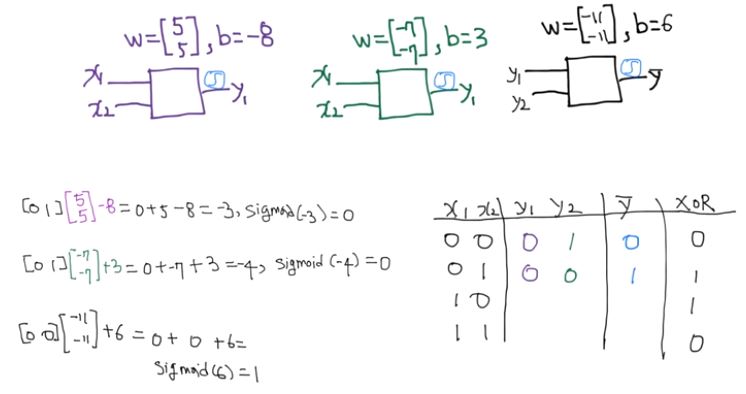 w=[5 5], b=-8
w=[-7 -7], b=3
w=[-11 -11], b=6
x1 x2 S y1
x1 x2 S y1
y1 y2 S ȳ
[0 1][5 5]-8=0+5-8=-3, sigmoid(-3)=0
[0 1][-7 -7]+3=0+-7+3=-4, sigmoid(-4)=0
[0 0][-11 -11]+6=0+0+6=
sigmoid(6)=1
x1 x2 y1 y2 ȳ XOR
0 0 0 1 0 0
0 1 0 0 1 1
1 0 1
1 1 0